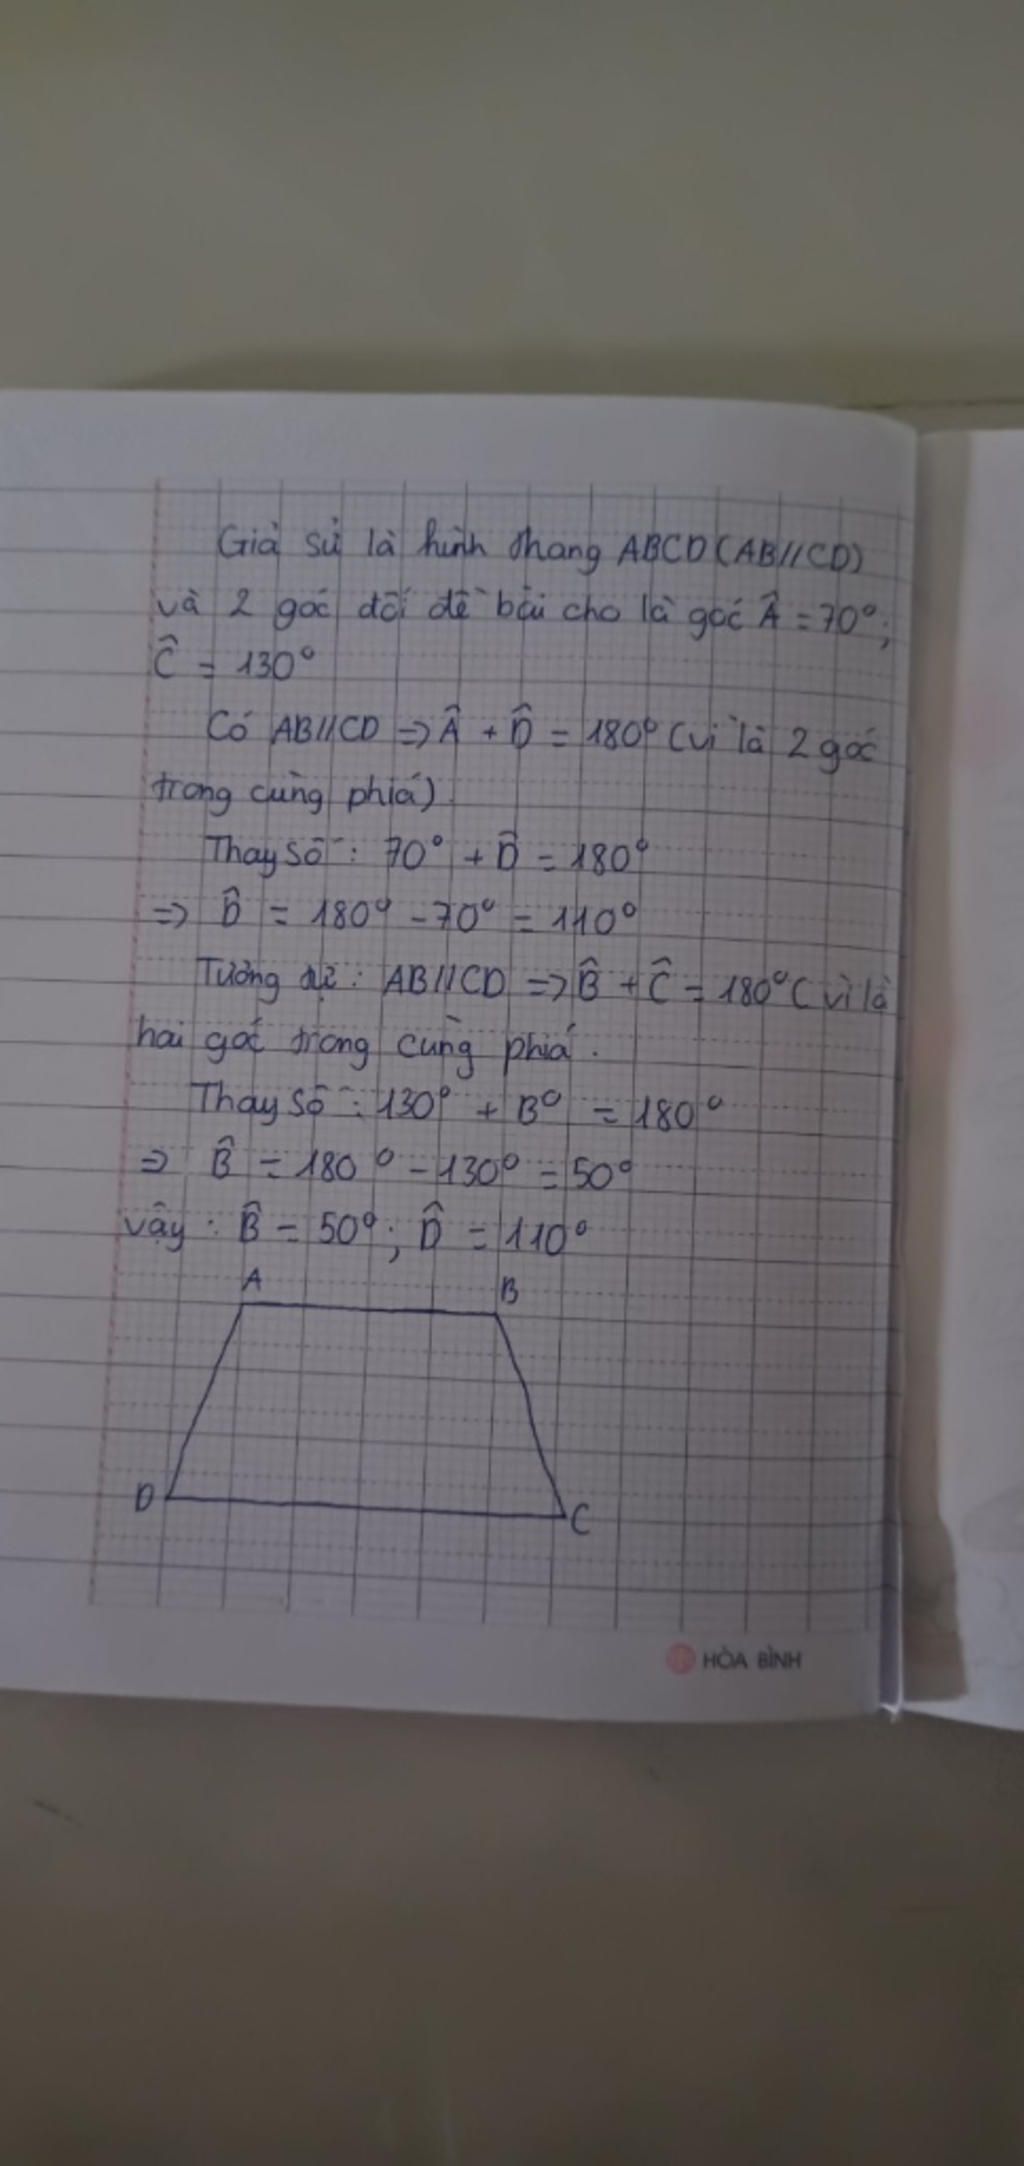 Giả sử là hình thang ABCD (AB//CD)
và 2 góc đối đề bài cho là góc Â = 70°;
Ĉ = 130°
Có AB//CD => Â + D̂ = 180° (vì là 2 góc
trong cùng phía)
Thay số: 70° + D̂ = 180°
=> D̂ = 180° - 70° = 110°
Tương tự: AB//CD => B̂ + Ĉ = 180° (vì là
hai góc trong cùng phía.
Thay số: 130° + B° = 180°
=> B̂ = 180° - 130° = 50°
vậy: B̂ = 50°; D̂ = 110°
A B
D C
HÒA BÌNH